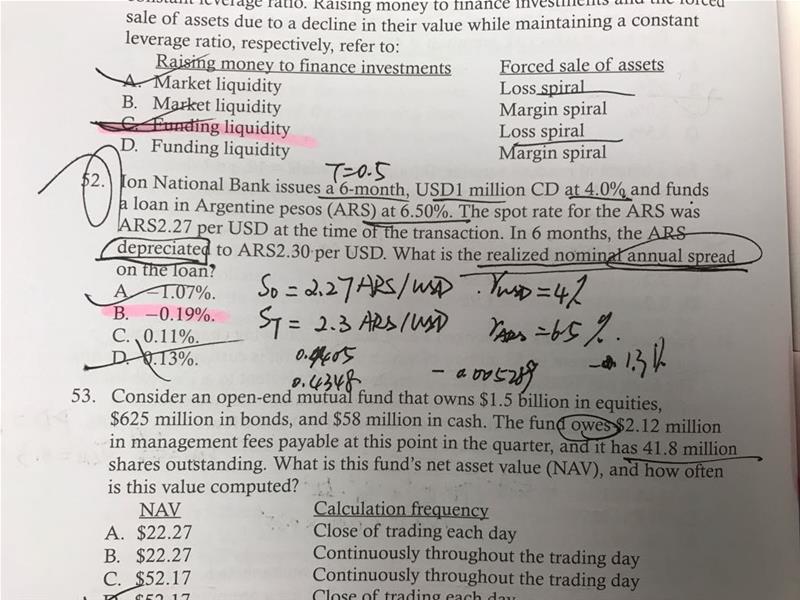 constant leverage ratio. Raising money to finance investments and the forced
sale of assets due to a decline in their value while maintaining a constant
leverage ratio, respectively, refer to:
Raising money to finance investments Forced sale of assets
A. Market liquidity Loss spiral
B. Market liquidity Margin spiral
C. Funding liquidity Loss spiral
D. Funding liquidity Margin spiral
T=0.5
52. Ion National Bank issues a 6-month, USD1 million CD at 4.0% and funds
a loan in Argentine pesos (ARS) at 6.50%. The spot rate for the ARS was
ARS2.27 per USD at the time of the transaction. In 6 months, the ARS
depreciated to ARS2.30 per USD. What is the realized nominal annual spread
on the loan?
A −1.07%. S0 = 2.27 ARS/USD. rUSD = 4%
B. −0.19%. ST = 2.3 ARS/USD rARS = 6.5%.
C. 0.11%.
D. 0.13%. 0.4405 - 1.3%
0.4348 - 0.005289
53. Consider an open-end mutual fund that owns $1.5 billion in equities,
$625 million in bonds, and $58 million in cash. The fund owes $2.12 million
in management fees payable at this point in the quarter, and it has 41.8 million
shares outstanding. What is this fund's net asset value (NAV), and how often
is this value computed?
NAV Calculation frequency
A. $22.27 Close of trading each day
B. $22.27 Continuously throughout the trading day
C. $52.17 Continuously throughout the trading day
D. $52.17 Close of trading each day